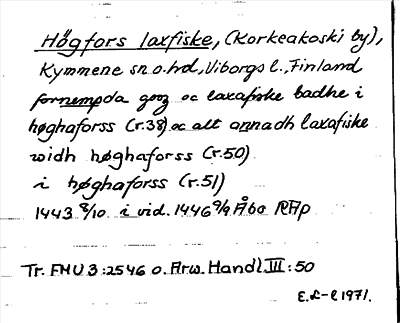 Högfors laxfiske, (Korkeakoski by),
Kymmene sn o. hd, Viborgs l., Finland
fornempda gooz oc laxafiske badhe i
høghaforss (r.38) oc alt annadh laxafiske
widh høghaforss (r.50)
i høghaforss (r.51)
1443 8/10 i vid. 1446 9/9 Åbo RAp
Tr. FMU 3:2546 o. Arw. Handl. III:50
E.L-l 1971.